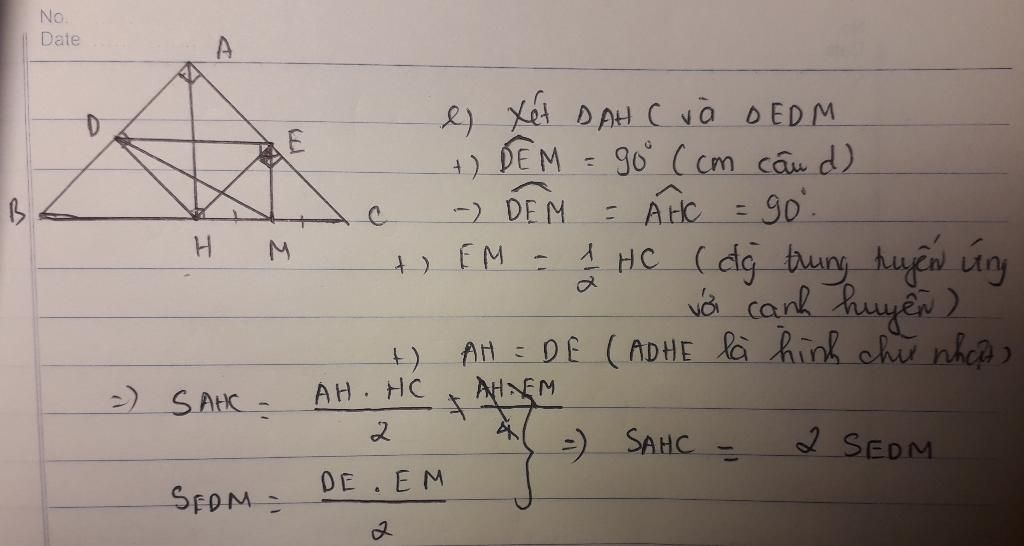 No.
Date
A
D
E
B
H
M
C
e) Xét ΔAHC và ΔEDM
+) \widehat{DEM} = 90° (cm câu d)
-) \widehat{DEM} = \widehat{AHC} = 90°.
+) EM = \frac{1}{2} HC (đg trung tuyến ứng
với cạnh huyền)
+) AH = DE (ADHE là hình chữ nhật)
=) SAHC = \frac{AH . HC}{2}
SEDM = \frac{DE . EM}{2}
=) SAHC = 2 SEDM